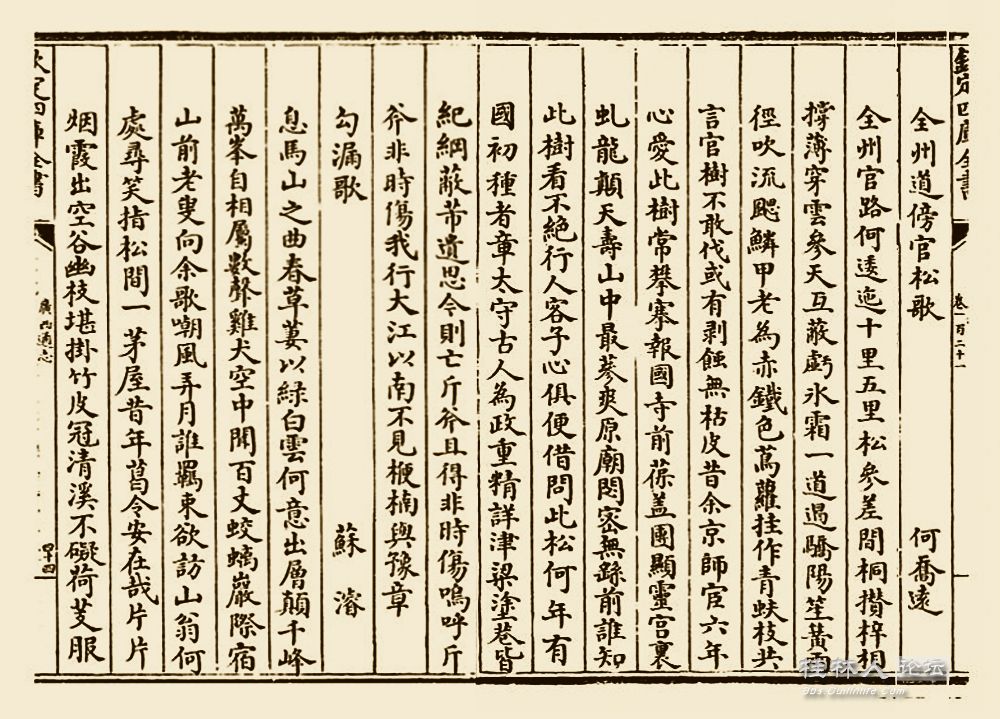 欽定四庫全書
卷一百二十一
全州道傍官松歌 何喬遠
全州官路何逶迤十里五里松參差間桐攢梓相
撐薄穿雲參天互蔽虧氷霜一道過驕陽笙簧兩
徑吹流颸鱗甲老為赤鐵色蔦蘿挂作青蚨枝共
言官樹不敢伐或有剥蝕無枯皮昔余京師宦六年
心愛此樹常攀搴報國寺前葆盖團顯靈宫裏
虬龍顛天壽山中最蔘爽原廟閟宻無蹊前誰知
此樹看不絶行人客子心俱便借問此松何年有
國初種者章太守古人為政重精詳津梁塗巷皆
紀綱蔽芾遺思今則亡斤斧且得非時傷嗚呼斤
斧非時傷我行大江以南不見楩楠與豫章
勾漏歌 蘇濬
息馬山之曲春草萋以緑白雲何意出層顛千峰
萬峯自相屬數聲雞犬空中聞百丈蛟螭巖際宿
山前老叟向余歌嘲風弄月誰羈束欲訪山翁何
處尋笑指松間一茅屋昔年葛令安在哉片片
烟霞出空谷幽枝堪掛竹皮冠清溪不礙荷芰服
欽定四庫全書
廣西通志
四十四
桂林人论坛
bbs.Guilinlife.Com